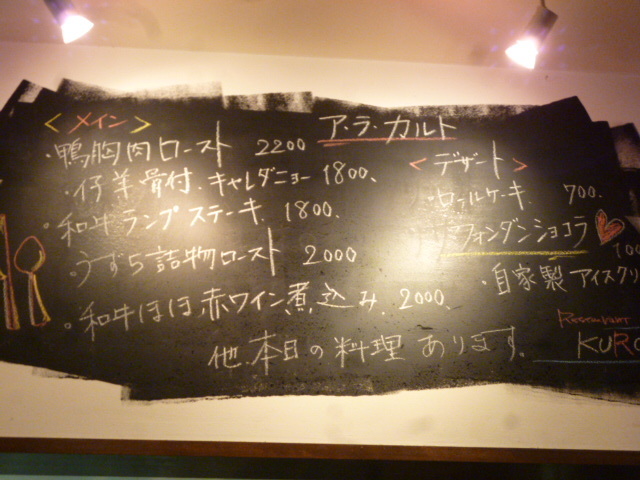 ア・ラ・カルト
<メイン>
・鴨胸肉ロースト 2200
・仔羊骨付.キャレダニョー 1800.
・和牛ランプステーキ. 1800.
・うずら詰物ロースト 2000
・和牛ほほ赤ワイン煮込み. 2000.
他.本日の料理あります.
<デザート>
・ロールケーキ. 700.
フォンダンショコラ
・自家製アイスクリ
RESTAURANT
KURO